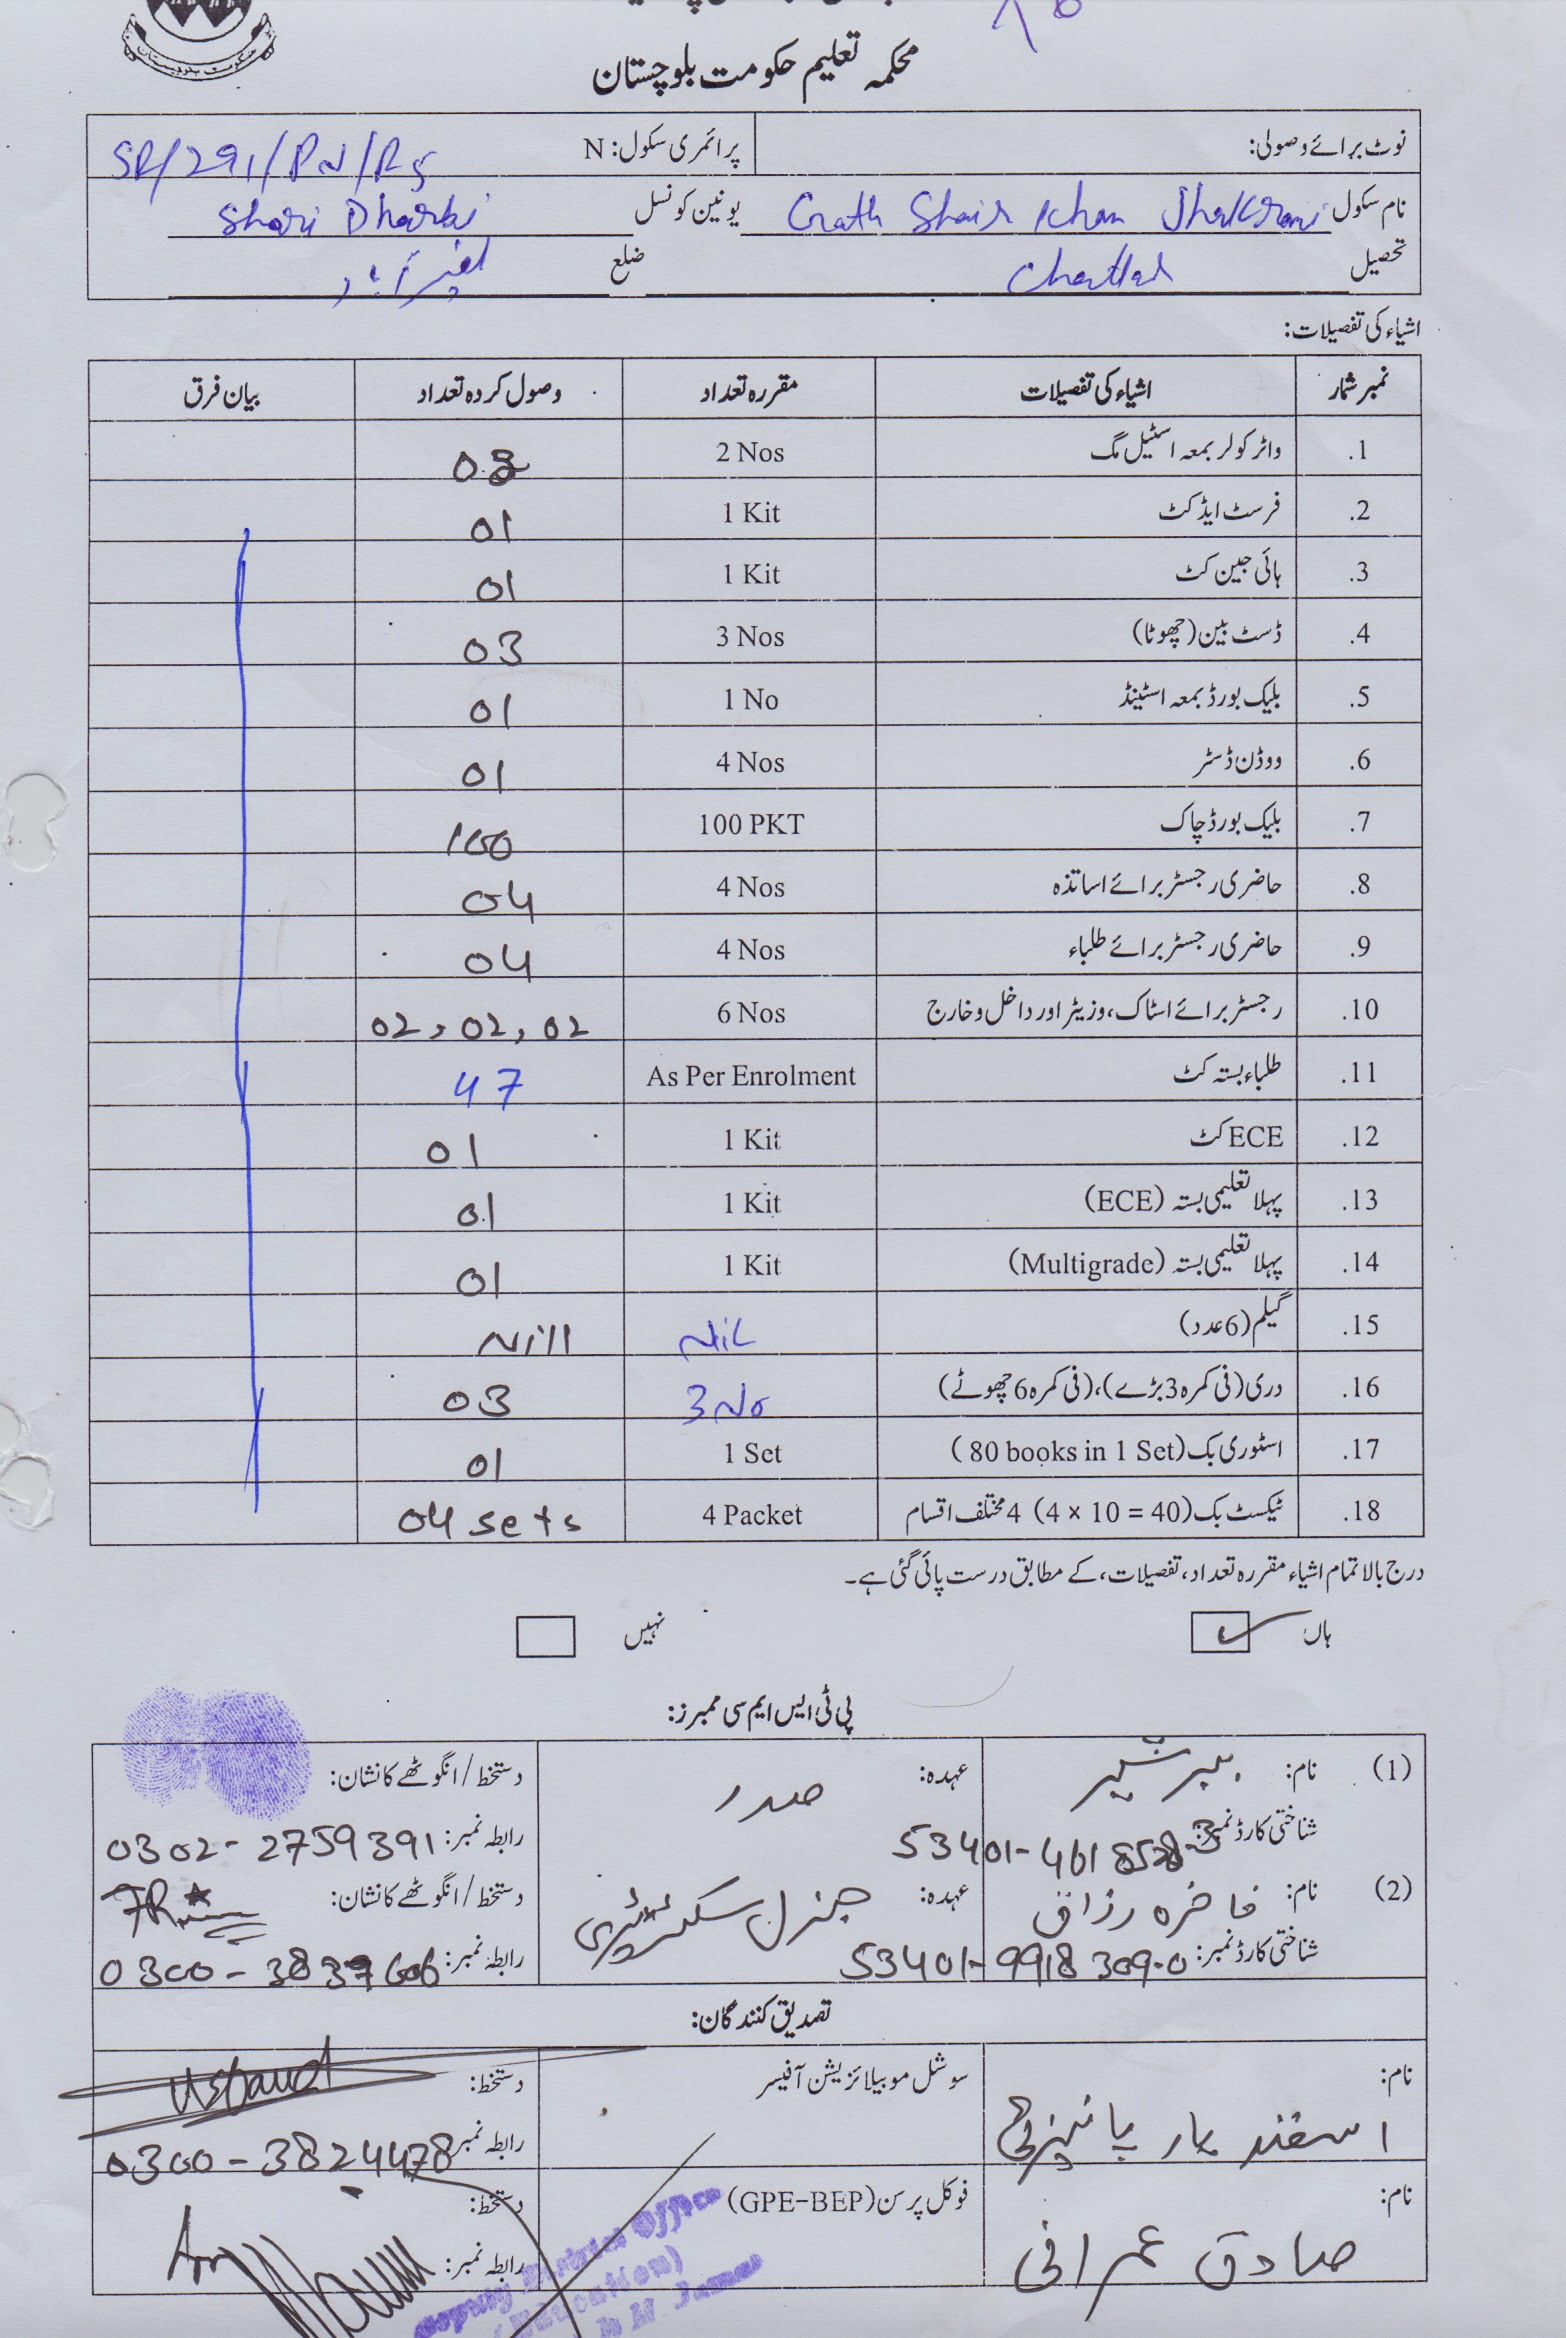 محکمہ تعلیم حکومت بلوچستان
نوٹ برائے وصولی: پرائمری سکول: N SR/291/PN/RS
نام سکول Goath Shair Khan Jhakrani یونین کونسل Shori Dharki
تحصیل Chattar ضلع نصیر آباد
اشیاء کی تفصیلات:
نمبر شمار اشیاء کی تفصیلات مقررہ تعداد وصول کردہ تعداد بیان فرق
.1 واٹر کولر بمعہ اسٹیل مگ 2 Nos 02
.2 فرسٹ ایڈ کٹ 1 Kit 01
.3 ہائی جین کٹ 1 Kit 01
.4 ڈسٹ بین (چھوٹا) 3 Nos 03
.5 بلیک بورڈ بمعہ اسٹینڈ 1 No 01
.6 ووڈن ڈسٹر 4 Nos 01
.7 بلیک بورڈ چاک 100 PKT 100
.8 حاضری رجسٹر برائے اساتذہ 4 Nos 04
.9 حاضری رجسٹر برائے طلباء 4 Nos 04
.10 رجسٹر برائے اسٹاک، وزیٹر اور داخل و خارج 6 Nos 02, 02, 02
.11 طلباء بستہ کٹ As Per Enrolment 47
.12 ECE کٹ 1 Kit 01
.13 پہلا تعلیمی بستہ (ECE) 1 Kit 01
.14 پہلا تعلیمی بستہ (Multigrade) 1 Kit 01
.15 گیلم (6 عدد) NiL Nill
.16 دری (فی کمرہ 3 بڑے)، (فی کمرہ 6 چھوٹے) 3 No 03
.17 اسٹوری بک (80 books in 1 Set) 1 Set 01
.18 ٹیکسٹ بک (4 × 10 = 40) 4 مختلف اقسام 4 Packet 04 sets
درج بالا تمام اشیاء مقررہ تعداد، تفصیلات، کے مطابق درست پائی گئی ہے۔
ہاں نہیں
پی ٹی ایس ایم سی ممبرز:
(1) نام: ببر شیر عہدہ: صدر دستخط/انگوٹھے کا نشان:
شناختی کارڈ نمبر: 53401-4618528-3 رابطہ نمبر: 0302-2759391
(2) نام: فاخرہ رزاق عہدہ: جنرل سکریٹری دستخط/انگوٹھے کا نشان:
شناختی کارڈ نمبر: 53401-9918309-0 رابطہ نمبر: 0300-3837606
تصدیق کنندگان:
نام: سوشل موبیلائزیشن آفیسر دستخط:
اسفند یار پانیزئی رابطہ نمبر 0300-3824478
نام: فوکل پرسن (GPE-BEP) دستخط:
صادق عمرانی رابطہ نمبر:
Deputy District Officer
(Education)